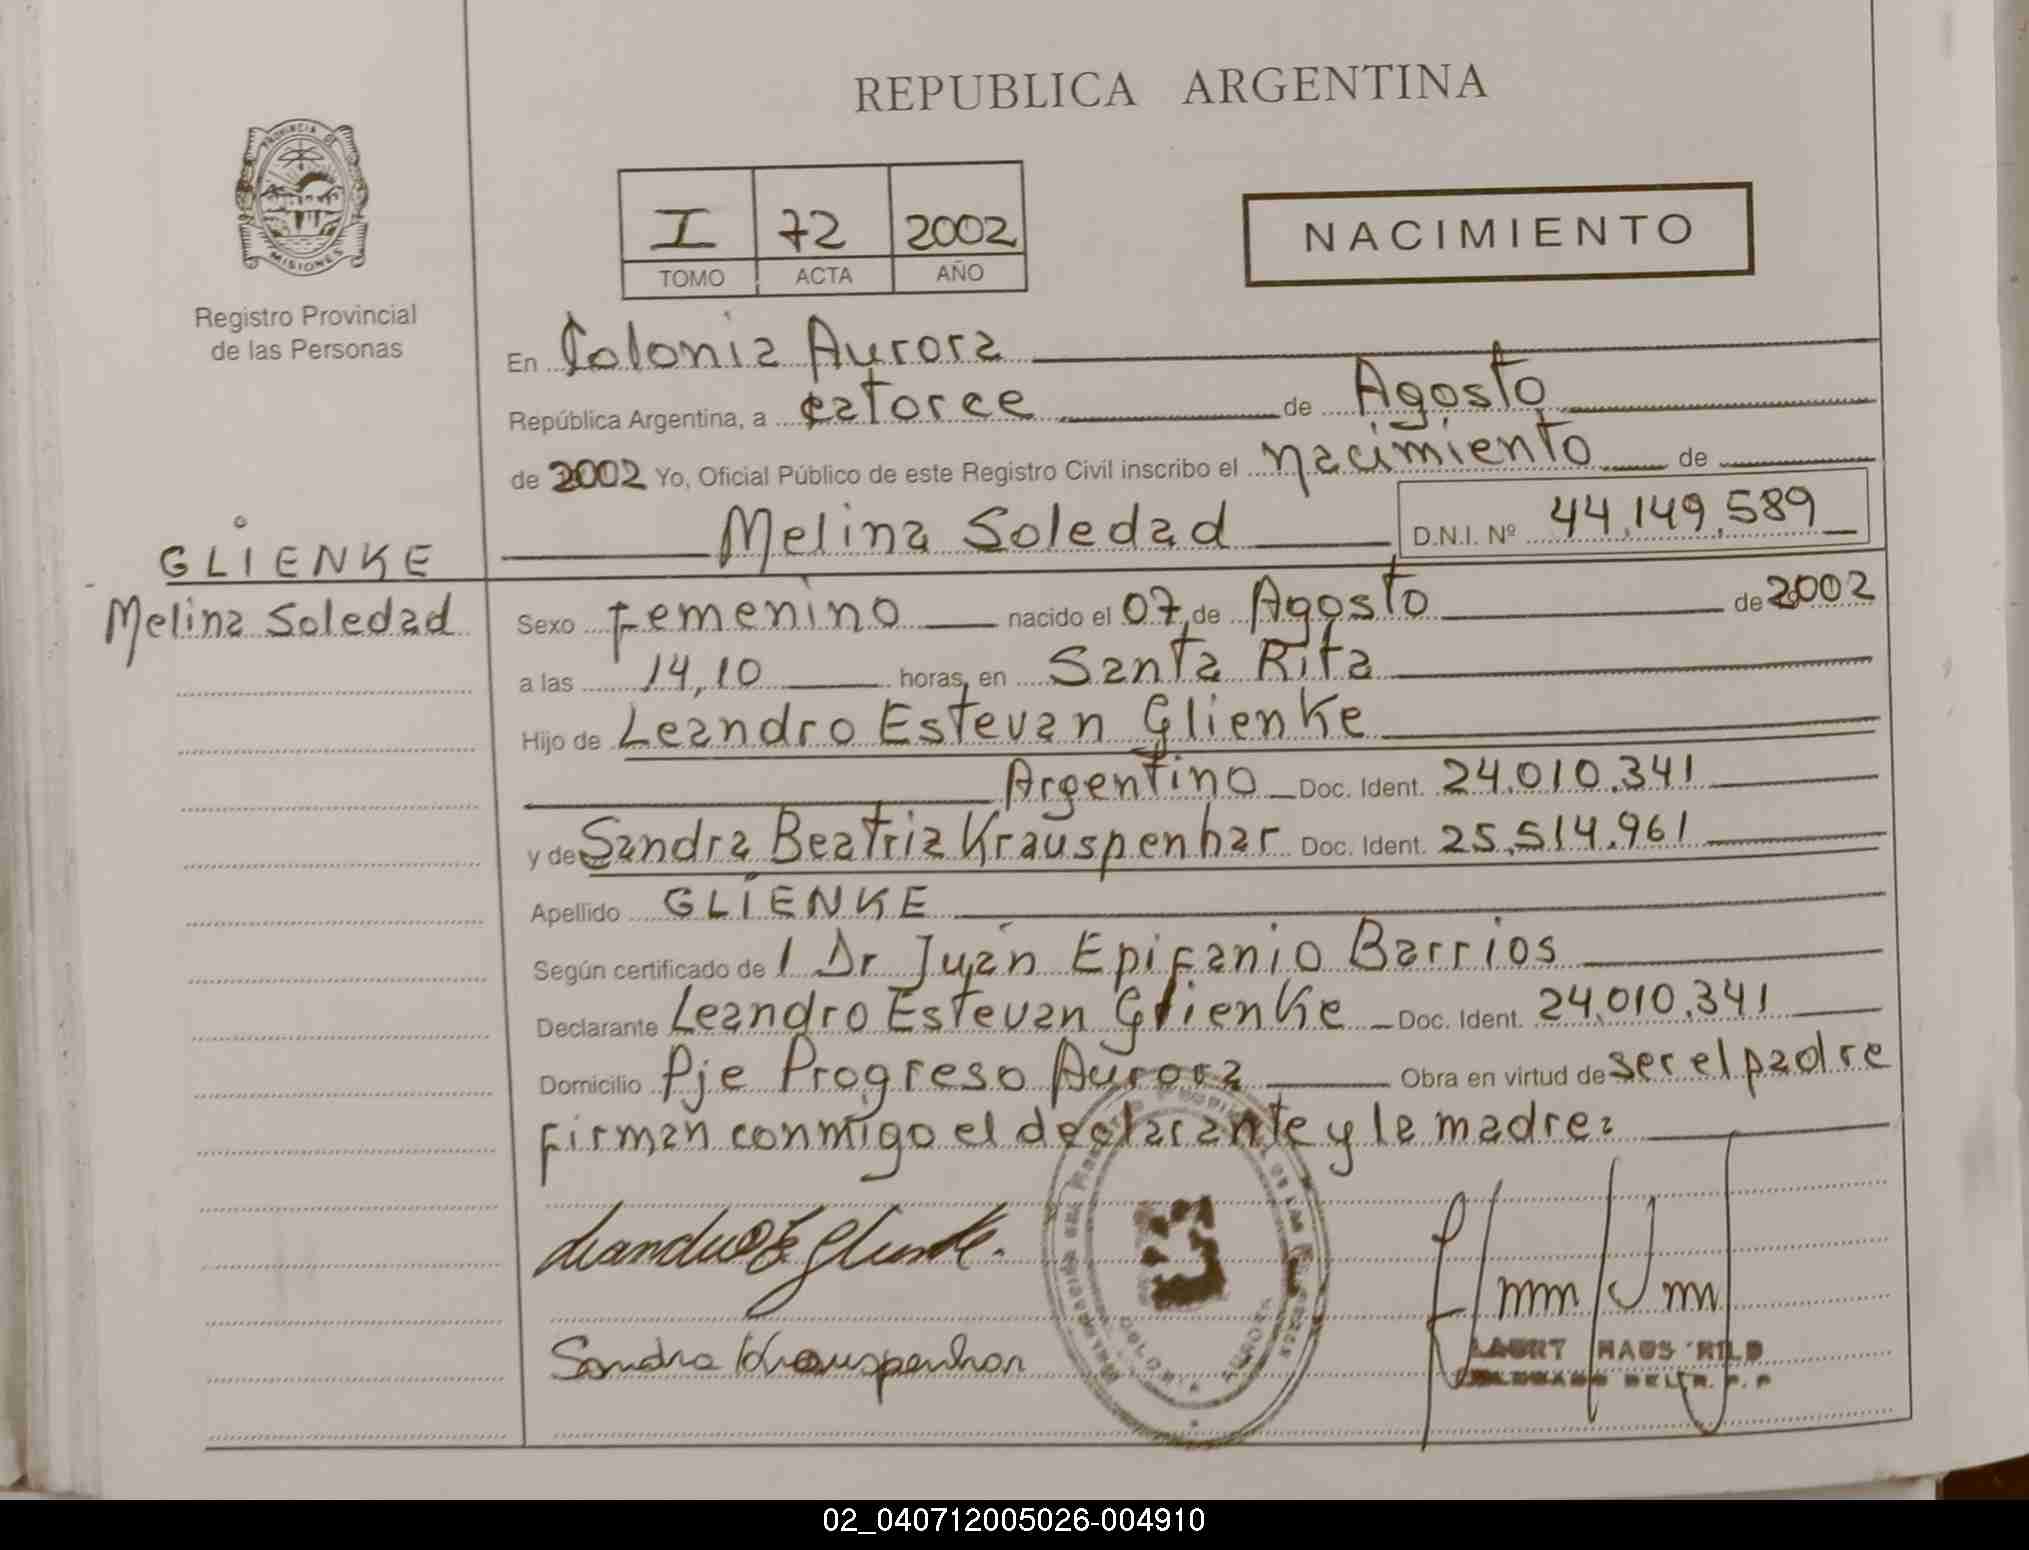 REPUBLICA ARGENTINA
PROVINCIA DE
MISIONES
Registro Provincial
de las Personas
I 72 2002
TOMO ACTA AÑO
NACIMIENTO
En Colonia Aurora
República Argentina, a catorce de Agosto
de 2002 Yo, Oficial Público de este Registro Civil inscribo el nacimiento de
Melina Soledad D.N.I. Nº 44,149,589
GLIENKE
Melina Soledad
Sexo Femenino nacido el 07 de Agosto de 2002
a las 14,10 horas, en Santa Rita
Hijo de Leandro Estevan Glienke
Argentino Doc. Ident. 24.010.341
y de Sandra Beatriz Krauspenhar Doc. Ident. 25.514.961
Apellido GLIENKE
Según certificado de l Dr Juan Epifanio Barrios
Declarante Leandro Estevan Glienke Doc. Ident. 24.010.341
Domicilio Pje Progreso Aurora Obra en virtud de ser el padre
firman conmigo el declarante y la madre:
Leandro E Glienke.
Sandra Krauspenhar
COLONIA AURORA
02_040712005026-004910